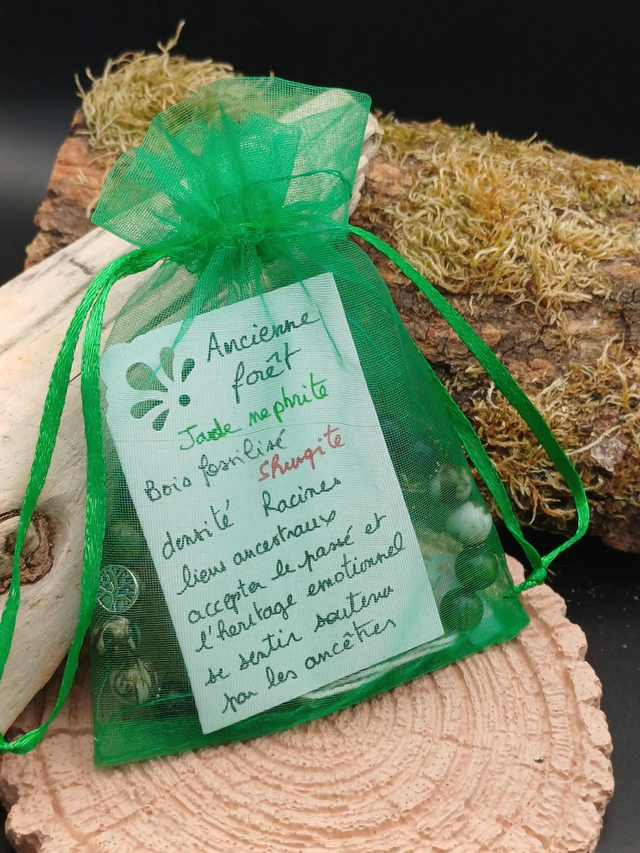 Ancienne
forêt
Jade nephrite
Bois fossilisé
Shungite
densité Racines
liens ancestraux
accepter le passé et
l'heritage emotionnel
se sentir soutenu
par les ancêtres